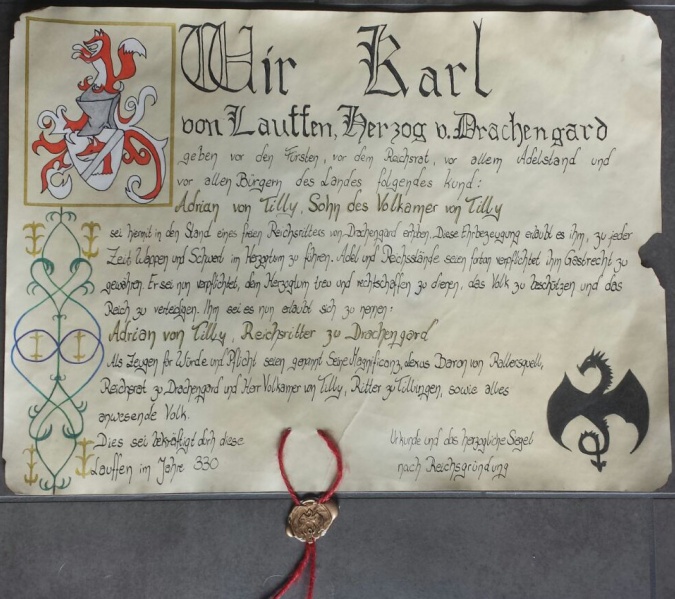 Wir Karl
von Lauffen, Herzog v. Drachengard
geben vor den Fürsten, vor dem Reichsrat, vor allem Adelsstand und
vor allen Bürgern des Landes folgendes kund:
Adrian von Tilly, Sohn des Volkamer von Tilly
sei hiermit in den Stand eines freien Reichsritters von Drachengard erhoben. Diese Ehrbezeugung erlaubt es ihm, zu jeder
Zeit Wappen und Schwert im Herzogtum zu führen. Adel und Reichsstände seien fortan verpflichtet ihm Gastrecht zu
gewähren. Er sei nun verpflichtet, dem Herzogtum treu und rechtschaffen zu dienen, das Volk zu beschützen und das
Reich zu verteidigen. Ihm sei es nun erlaubt sich zu nennen:
Adrian von Tilly, Reichsritter zu Drachengard
Als Zeugen für Würde und Pflicht seien genannt Seine Magnifizenz, Baron von Rallerspuell,
Reichsrat zu Drachengard und Herr Volkamer von Tilly, Ritter zu Tillingen, sowie alles
anwesende Volk.
Dies sei bekräftigt durch diese Urkunde und das herzogliche Siegel
Lauffen im Jahre 330 nach Reichsgründung